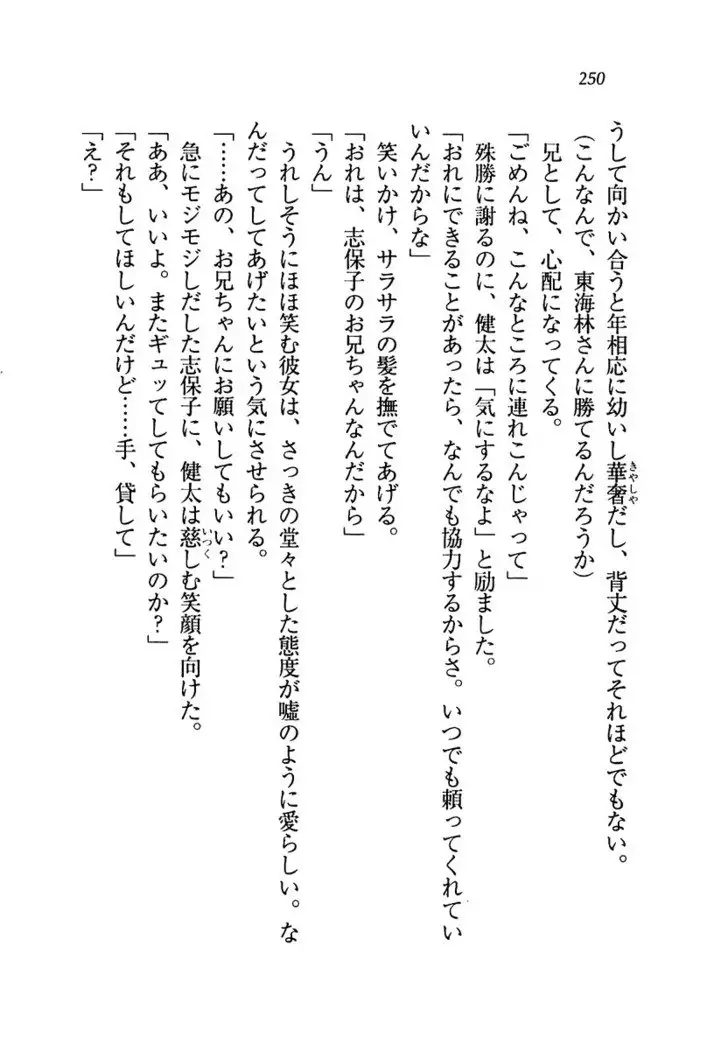 250
うして向かい合うと年相応に幼いし華奢だし、背丈だってそれほどでもない。
きゃしゃ
(こんなんで、東海林さんに勝てるんだろうか)
兄として、心配になってくる。
「ごめんね、こんなところに連れこんじゃって」
殊勝に謝るのに、健太は「気にするなよ」と励ました。
「おれにできることがあったら、なんでも協力するからさ。いつでも頼ってくれてい
いんだからな」
笑いかけ、サラサラの髪を撫でてあげる。
「おれは、志保子のお兄ちゃんなんだから」
「うん」
うれしそうにほほ笑む彼女は、さっきの堂々とした態度が嘘のように愛らしい。な
んだってしてあげたいという気にさせられる。
「……あの、お兄ちゃんにお願いしてもいい?」
急にモジモジしだした志保子に、健太は慈しむ笑顔を向けた。
いつく
「ああ、いいよ。またギュッてしてもらいたいのか?」
「それもしてほしいんだけど……手、貸して」
「え?」